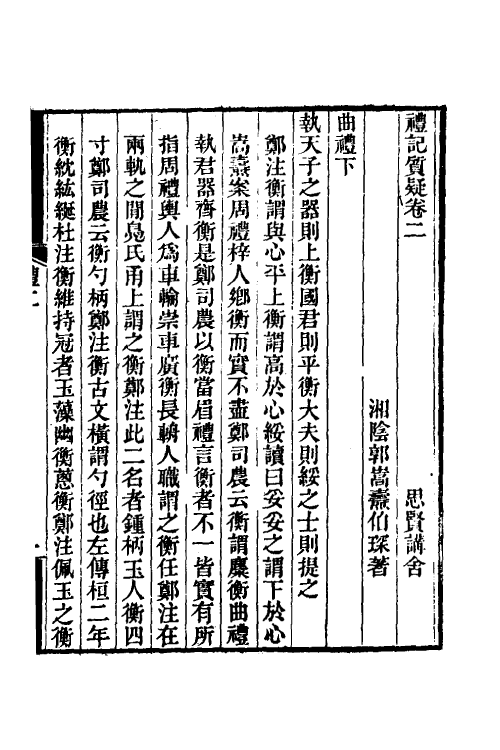 禮記質疑卷二
思賢講舍
湘陰郭嵩燾伯琛著
曲禮下
執天子之器則上衡國君則平衡大夫則綏之士則提之
鄭注衡謂與心平上衡謂高於心綏讀曰妥妥之謂下於心
嵩燾案周禮梓人鄉衡而實不盡鄭司農云衡謂麋衡曲禮
執君器齊衡是鄭司農以衡當眉禮言衡者不一皆實有所
指周禮輿人爲車輪崇車廣衡長輈人職謂之衡任鄭注在
兩軛之閒鳧氏甬上謂之衡鄭注此二名者鍾柄玉人衡四
寸鄭司農云衡勺柄鄭注衡古文橫謂勺徑也左傳桓二年
衡紞紘綖杜注衡維持冠者玉藻幽衡蔥衡鄭注佩玉之衡
禮二
一